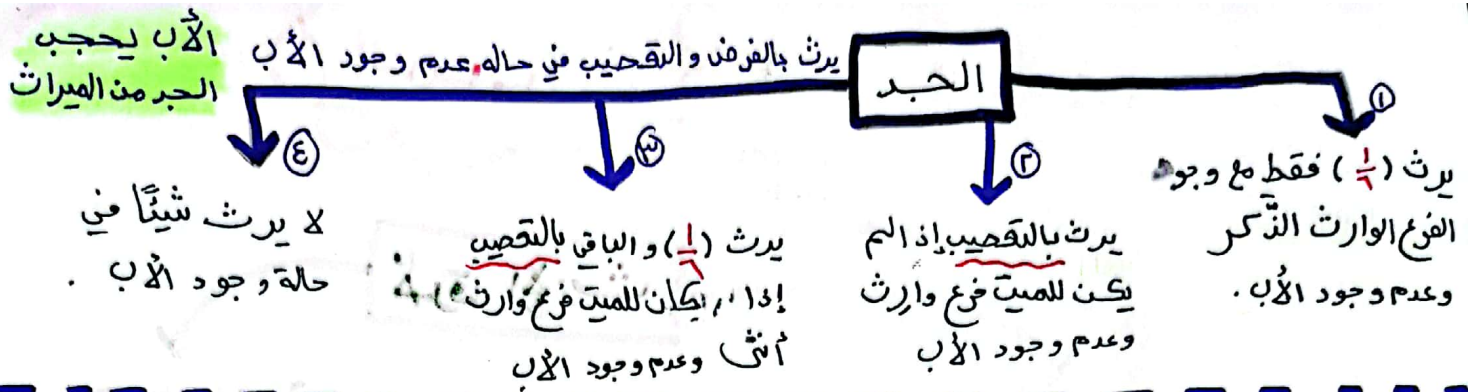 الأب يحجب
الجد من الميراث
يرث بالفرض والتعصيب في حاله عدم وجود الأب
الجد
١
يرث (١/٦) فقط مع وجود
الفرع الوارث الذَّكر
وعدم وجود الأب.
٢
يرث بالتعصيب إذا لم
يكن للميت فرع وارث
وعدم وجود الأب
٣
يرث (١/٦) والباقي بالتعصيب
إذا كان للميت فرع وارث
أنثى وعدم وجود الأب
٤
لا يرث شيئًا في
حالة وجود الأب .